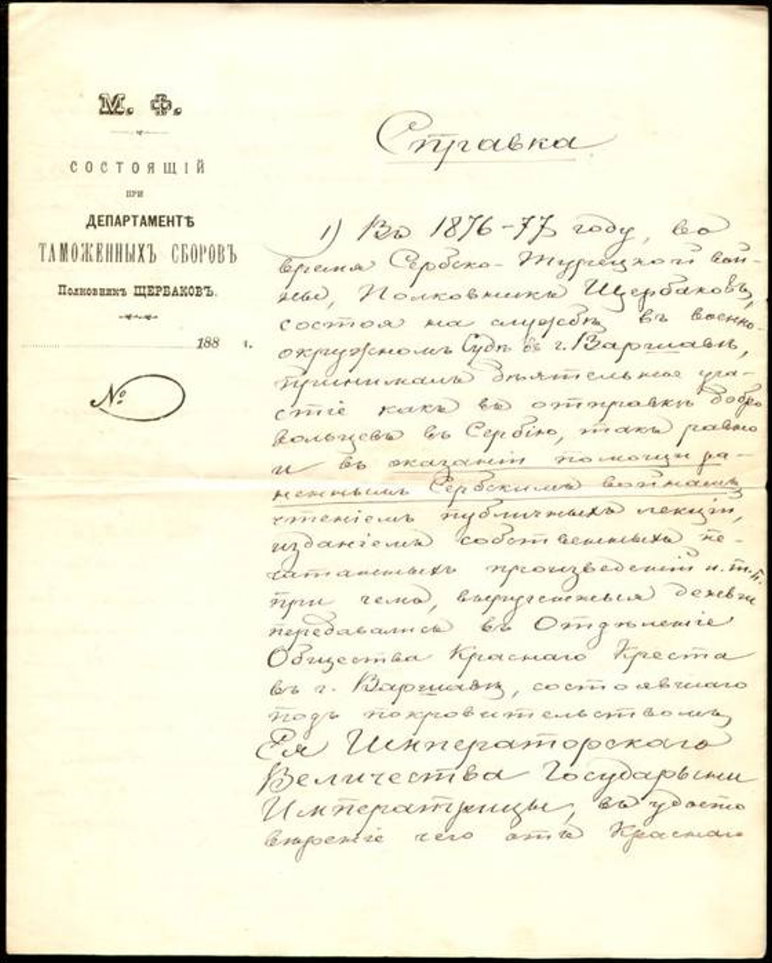 М. Ф.
СОСТОЯЩІЙ
ПРИ
ДЕПАРТАМЕНТѢ
ТАМОЖЕННЫХЪ СБОРОВЪ
Полковникъ ЩЕРБАКОВЪ.
188 г.
№
Справка
1) Въ 1876-77 году, во
время Сербско-Турецкой вой-
ны, Полковникъ Щербаковъ,
состоя на службѣ въ военно-
окружномъ Судѣ въ г. Варшавѣ,
принималъ дѣятельное уча-
стіе какъ въ отправкѣ добро
вольцевъ въ Сербію, такъ равно
и въ оказаніи помощи ра-
неннымъ Сербскимъ войнамъ
чтеніемъ публичныхъ лекцій,
изданіемъ собственныхъ пе-
чатанныхъ произведеній и. т. п.
при чемъ, вырученныя деньги
передавались въ Отдѣленіе
Общества Краснаго Креста
въ г. Варшавѣ, состоявшаго
подъ покровительствомъ
Ея Императорскаго
Величества Государыни
Императрицы, въ удосто
вѣреніе чего отъ Краснаго